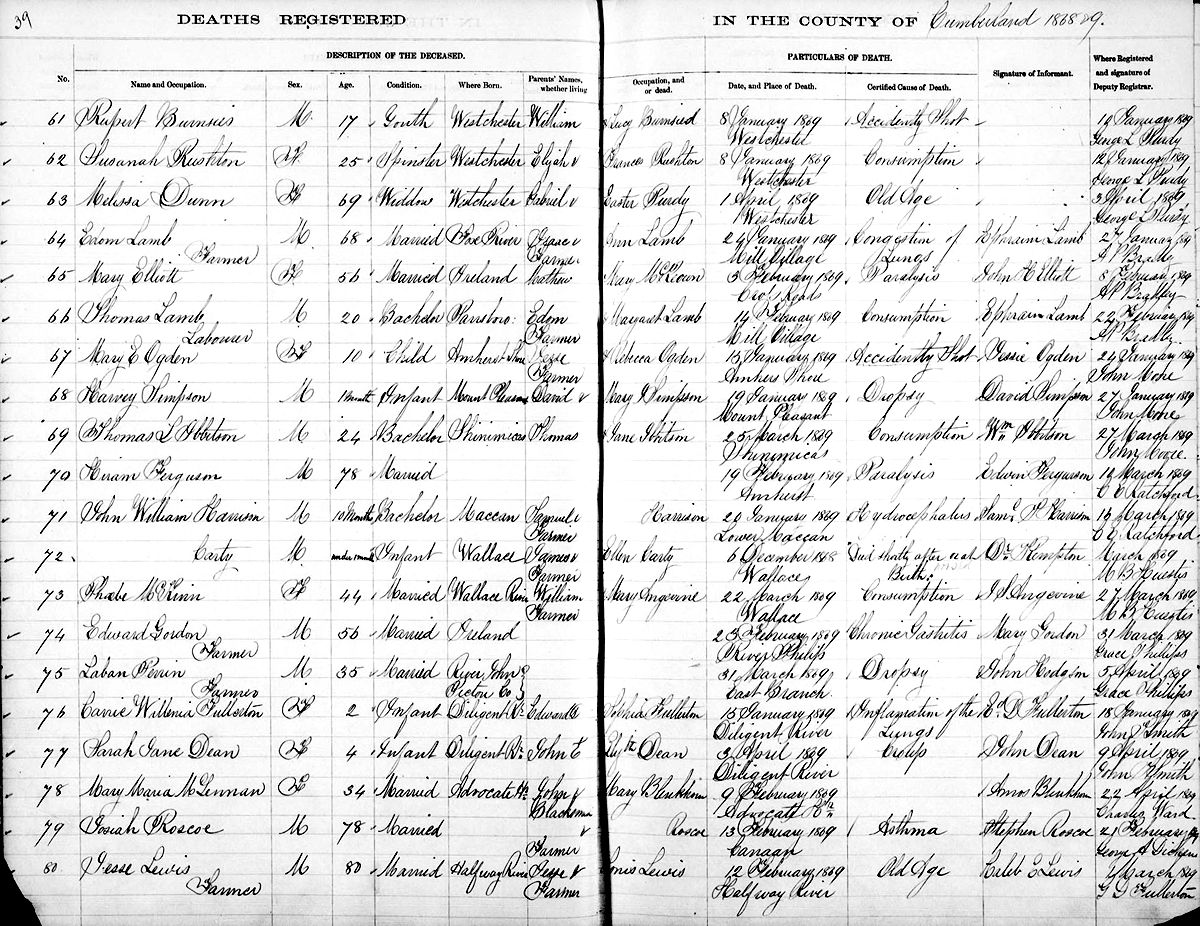 39
DEATHS REGISTERED IN THE COUNTY OF Cumberland 1868 & 9.
DESCRIPTION OF THE DECEASED. PARTICULARS OF DEATH.
No. Name and Occupation. Sex. Age. Condition. Where Born. Parents' Names, whether living Occupation, and or dead. Date, and Place of Death. Certified Cause of Death. Signature of Informant. Where Registered and signature of Deputy Registrar.
61 Rupert Burnsies M. 17 Youth Westchester William & Lucy Burnsied 8 January 1869 Accidently Shot 19 January 1869
Westchester George L Purdy
62 Susanah Rushton F 25 Spinster Westchester Elijah & Frances Rushton 8 January 1869 Consumption 12 January 1869
Westchester George L Purdy
63 Melissa Dunn F 69 Widdow Westchester Gabriel & Easter Purdy 1 April 1869 Old Age 3 April 1869
Westchester George L Purdy
64 Edom Lamb M. 68 Married Fox River Isaac & Ann Lamb 24 January 1869 Congestion of Ephraim Lamb 27 January 1869
Farmer Farmer Mill Village Lungs A P Bradley
65 Mary Elliott F. 56 Married Ireland Mathew Mary McKeown 3 February 1869 Paralysis John H Elliott 8 February 1869
Cross Roads A P Bradley
66 Thomas Lamb M 20 Bachelor Parrsboro Edom & Margaret Lamb 14 February 1869 Consumption Ephraim Lamb 22 February 1869
Labourer Farmer Mill Village A P Bradley
67 Mary E Ogden F 10 Child Amherst Shore Jesse & Rebecca Ogden 13 January 1869 Accidently Shot Jessie Ogden 24 January 1869
Farmer Amhers Shore John Moore
68 Harvey Simpson M 1 month Infant Mount Pleasant David & Mary Simpson 19 January 1869 Dropsy David Simpson 27 January 1869
Mount Pleasant John Moore
69 Thomas L Ibbitson M 24 Bachelor Shinimicas Thomas & Jane Ibbitson 25 March 1869 Consumption Wm Ibbitson 27 March 1869
Shinimicas John Moore
70 Hiram Ferguson M 78 Married 19 February 1869 Paralysis Edwin Ferguson 10 March 1869
Amherst C E Ratchford
71 John William Harrison M 10 Months Bachelor Maccan Samuel & Harrison 20 January 1869 Hydrocephalus Saml P Harrison 13 March 1869
Farmer Lower Maccan C E Ratchford
72 Carty M. Infant Wallace James & Ellen Carty 6 December 1868 Died shortly after Dr Kempton March 1869
Farmer Wallace Birth. M B Huestis
73 Phebe McKinn F 44 Married Wallace River William Mary Angevine 22 March 1869 Consumption I S Angevine 27 March 1869
Farmer Wallace M B Huestis
74 Edward Gordon M 56 Married Ireland 23 February 1869 Chronic Gastritis Mary Gordon 31 March 1869
Farmer River Philip Grace Phillips
75 Laban Perrin M 35 Married River John 31 March 1869 Dropsy John Hodgson 5 April 1869
Farmer Pictou Co East Branch Grace Phillips
76 Carrie Willenia Fullerton F 2 Infant Diligent Rr Edward & Sophia Fullerton 15 January 1869 Inflamation of the E. D Fullerton 18 January 1869
Diligent River Lungs John T Smith
77 Sarah Jane Dean F 4 Infant Diligent Rr John & Elizth Dean 3 April 1869 Croup John Dean 9 April 1869
Diligent River John T Smith
78 Mary Maria McLennan F 34 Married Advocate Hr John & Mary Blenkhorn 9 February 1869 Amos Blenkhorn 22 April 1869
Blacksmith Advocate Hr Charles Ward
79 Josiah Roscoe M 78 Married & Roscoe 13 February 1869 Asthma Stephen Roscoe 21 February 1869
Farmer Canaan George A Dickens
80 Jesse Lewis M 80 Married Halfway River Jesse & Lewis 12 February 1869 Old Age Caleb E Lewis March 1869
Farmer Farmer Halfway River G D Fullerton